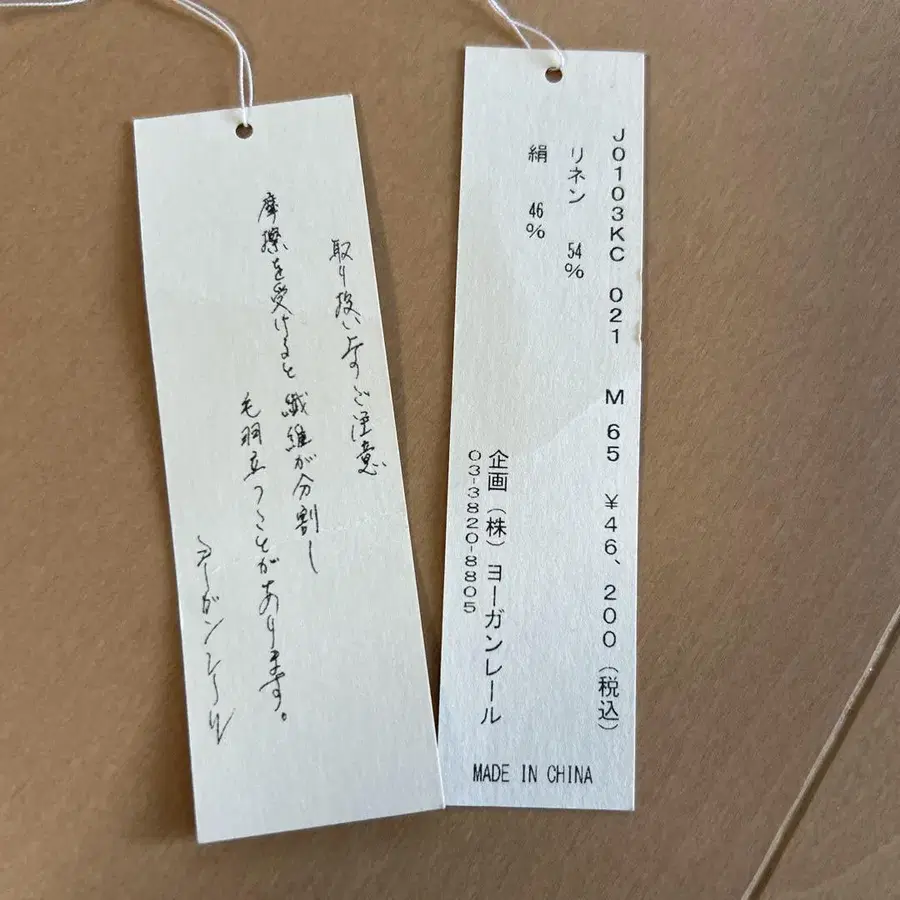 取り扱い上のご注意
摩擦を受けると繊維が分割し
毛羽立つことがあります。
ヨーガンレール
J0103KC 021 M 65 ¥46、200(税込)
リネン 54%
絹 46%
企画(株)ヨーガンレール
03-3820-8805
MADE IN CHINA